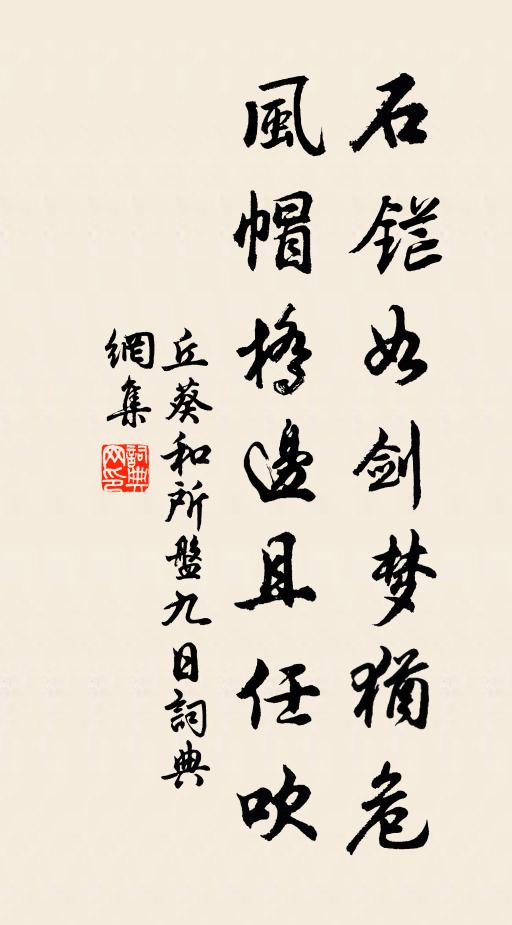 石鋩如剑梦猶危
風帽橋邊且任吹
丘葵和所盤九日詞典
網集
詞典
网印